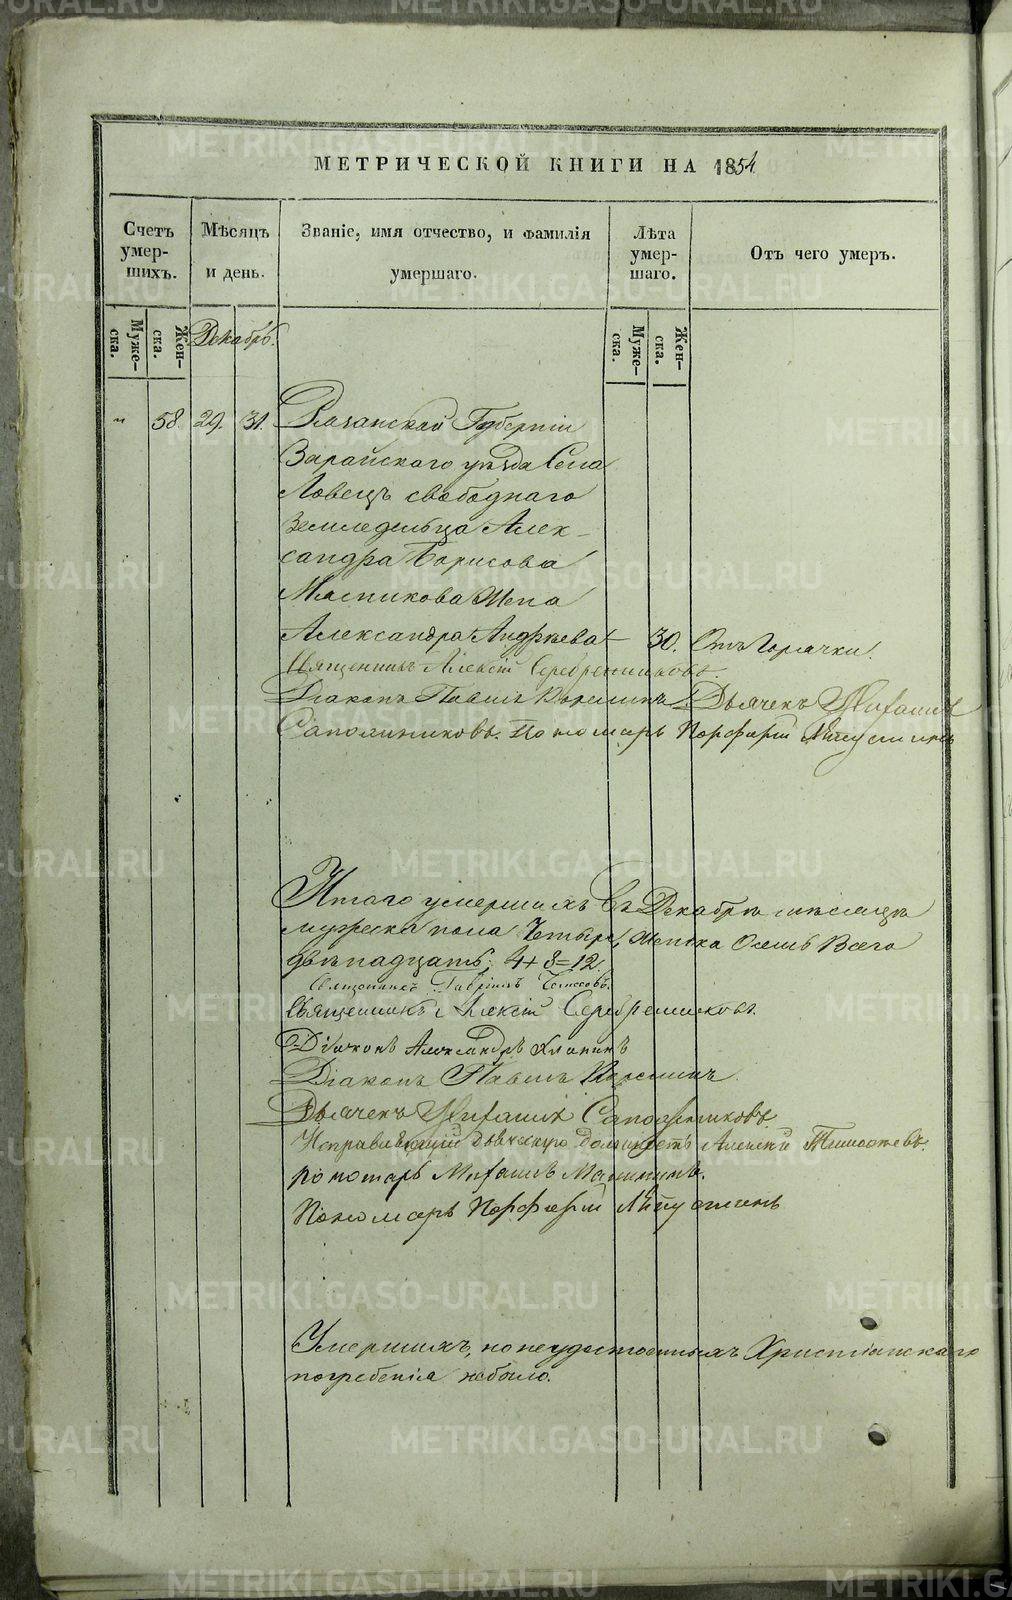 МЕТРИЧЕСКОЙ КНИГИ НА 1854
Счетъ умер-шихъ.
Мѣсяцъ и день.
Званіе, имя отчество, и фамилія умершаго.
Лѣта умер-шаго.
Отъ чего умеръ.
Муже-ска.
Жен-ска.
Декабрь.
Муже-ска.
Жен-ска.
" 58. 29. 31. Рязанской Губерніи
Зарайскаго уѣзда Села
Ловецъ свободнаго
Земледельца Алек-
сандра Борисова
Мясникова Жена
Александра Андрѣева — 30. Отъ Горячки.
Священникъ Алексій Серебренниковъ.
Діаконъ Павелъ Дьячекъ
Сапожниковъ. Пономарь Порфирій
Итого умершихъ въ Декабрѣ мѣсяцѣ
мужеска пола Четыре, женска Осемь Всего
двѣнадцать, 4+8=12.
Священникъ Гавріилъ
Священникъ Алексій Серебренниковъ.
Діаконъ Александръ
Діаконъ Павелъ
Дьячекъ Сапожниковъ.
Исправляющій дьяческую должность Алексѣй
Пономарь
Пономарь Порфирій
Умершихъ, но неудостоенныхъ Христіанскаго
погребенія небыло.
METRIKI.GASO-URAL.RU